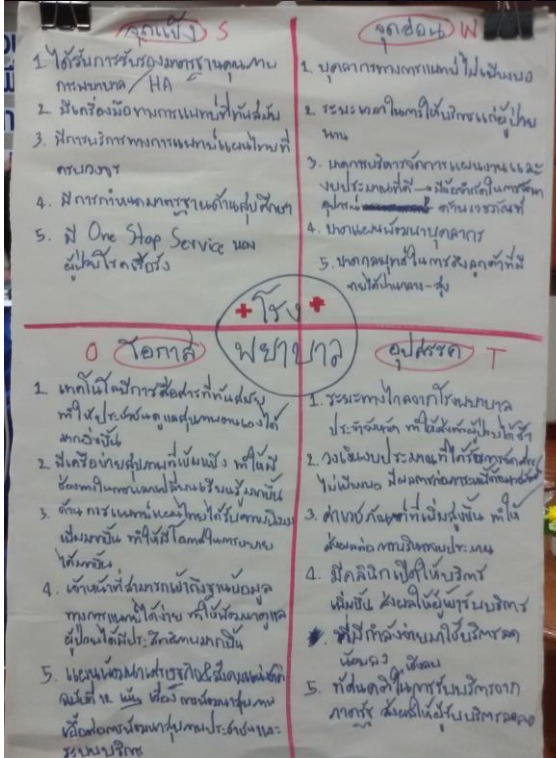 จุดแข็ง S
1. ได้รับการรับรองมาตรฐานคุณภาพ
การพยาบาล / HA
2. มีเครื่องมือทางการแพทย์ที่ทันสมัย
3. มีการบริการทางการแพทย์แผนไทยที่
ครบวงจร
4. มีการกำหนดมาตรฐานด้านสุขศึกษา
5. มี One Stop Service ของ
ผู้ป่วยโรคเรื้อรัง
จุดอ่อน W
1. บุคลากรทางการแพทย์ไม่เพียงพอ
2. ระยะเวลาในการให้บริการแก่ผู้ป่วย
นาน
3. ขาดการบริหารจัดการแผนงานและ
งบประมาณที่ดี → มีข้อจำกัดในการจัดหา
อุปกรณ์ ด้านเวชภัณฑ์
4. ขาดแผนพัฒนาบุคลากร
5. ขาดกลยุทธ์ในการดึงลูกค้าที่มี
รายได้ปานกลาง - สูง
โรง
พยาบาล
O โอกาส
1. เทคโนโลยีการสื่อสารที่ทันสมัย
ทำให้ประชาชนดูแลสุขภาพตนเองได้
มากยิ่งขึ้น
2. มีเครือข่ายสุขภาพที่เข้มแข็ง ทำให้มี
ช่องทางในการแลกเปลี่ยนเรียนรู้มากขึ้น
3. ด้านการแพทย์แผนไทยได้รับความนิยม
เพิ่มมากขึ้น ทำให้มีโอกาสในการขยาย
ได้มากขึ้น
4. เจ้าหน้าที่สามารถเข้าถึงฐานข้อมูล
ทางการแพทย์ได้ง่าย ทำให้พัฒนาดูแล
ผู้ป่วยได้มีประสิทธิภาพมากขึ้น
5. แผนพัฒนาเศรษฐกิจ&สังคมแห่งชาติ
ฉบับที่ 12 เน้น เรื่อง การพัฒนาสุขภาพ
เอื้อต่อการพัฒนาสุขภาพประชาชนและ
ระบบบริการ
อุปสรรค T
1. ระยะทางไกลจากโรงพยาบาล
ประจำจังหวัด ทำให้ส่งต่อผู้ป่วยได้ช้า
2. วงเงินงบประมาณที่ได้รับการจัดสรร
ไม่เพียงพอ มีผลกระทบต่อการ
3. ค่าเวชภัณฑ์ที่เพิ่มสูงขึ้น ทำให้
ส่งผลต่อการบริหารงบประมาณ
4. มีคลินิกเปิดให้บริการ
เพิ่มขึ้น ส่งผลให้ผู้เข้ารับบริการ
ที่มีกำลังจ่ายมาใช้บริการลด
น้อยลง
5. ทัศนคติเชิงลบในการรับบริการจาก
ภาครัฐ ส่งผลให้ผู้รับบริการลดลง